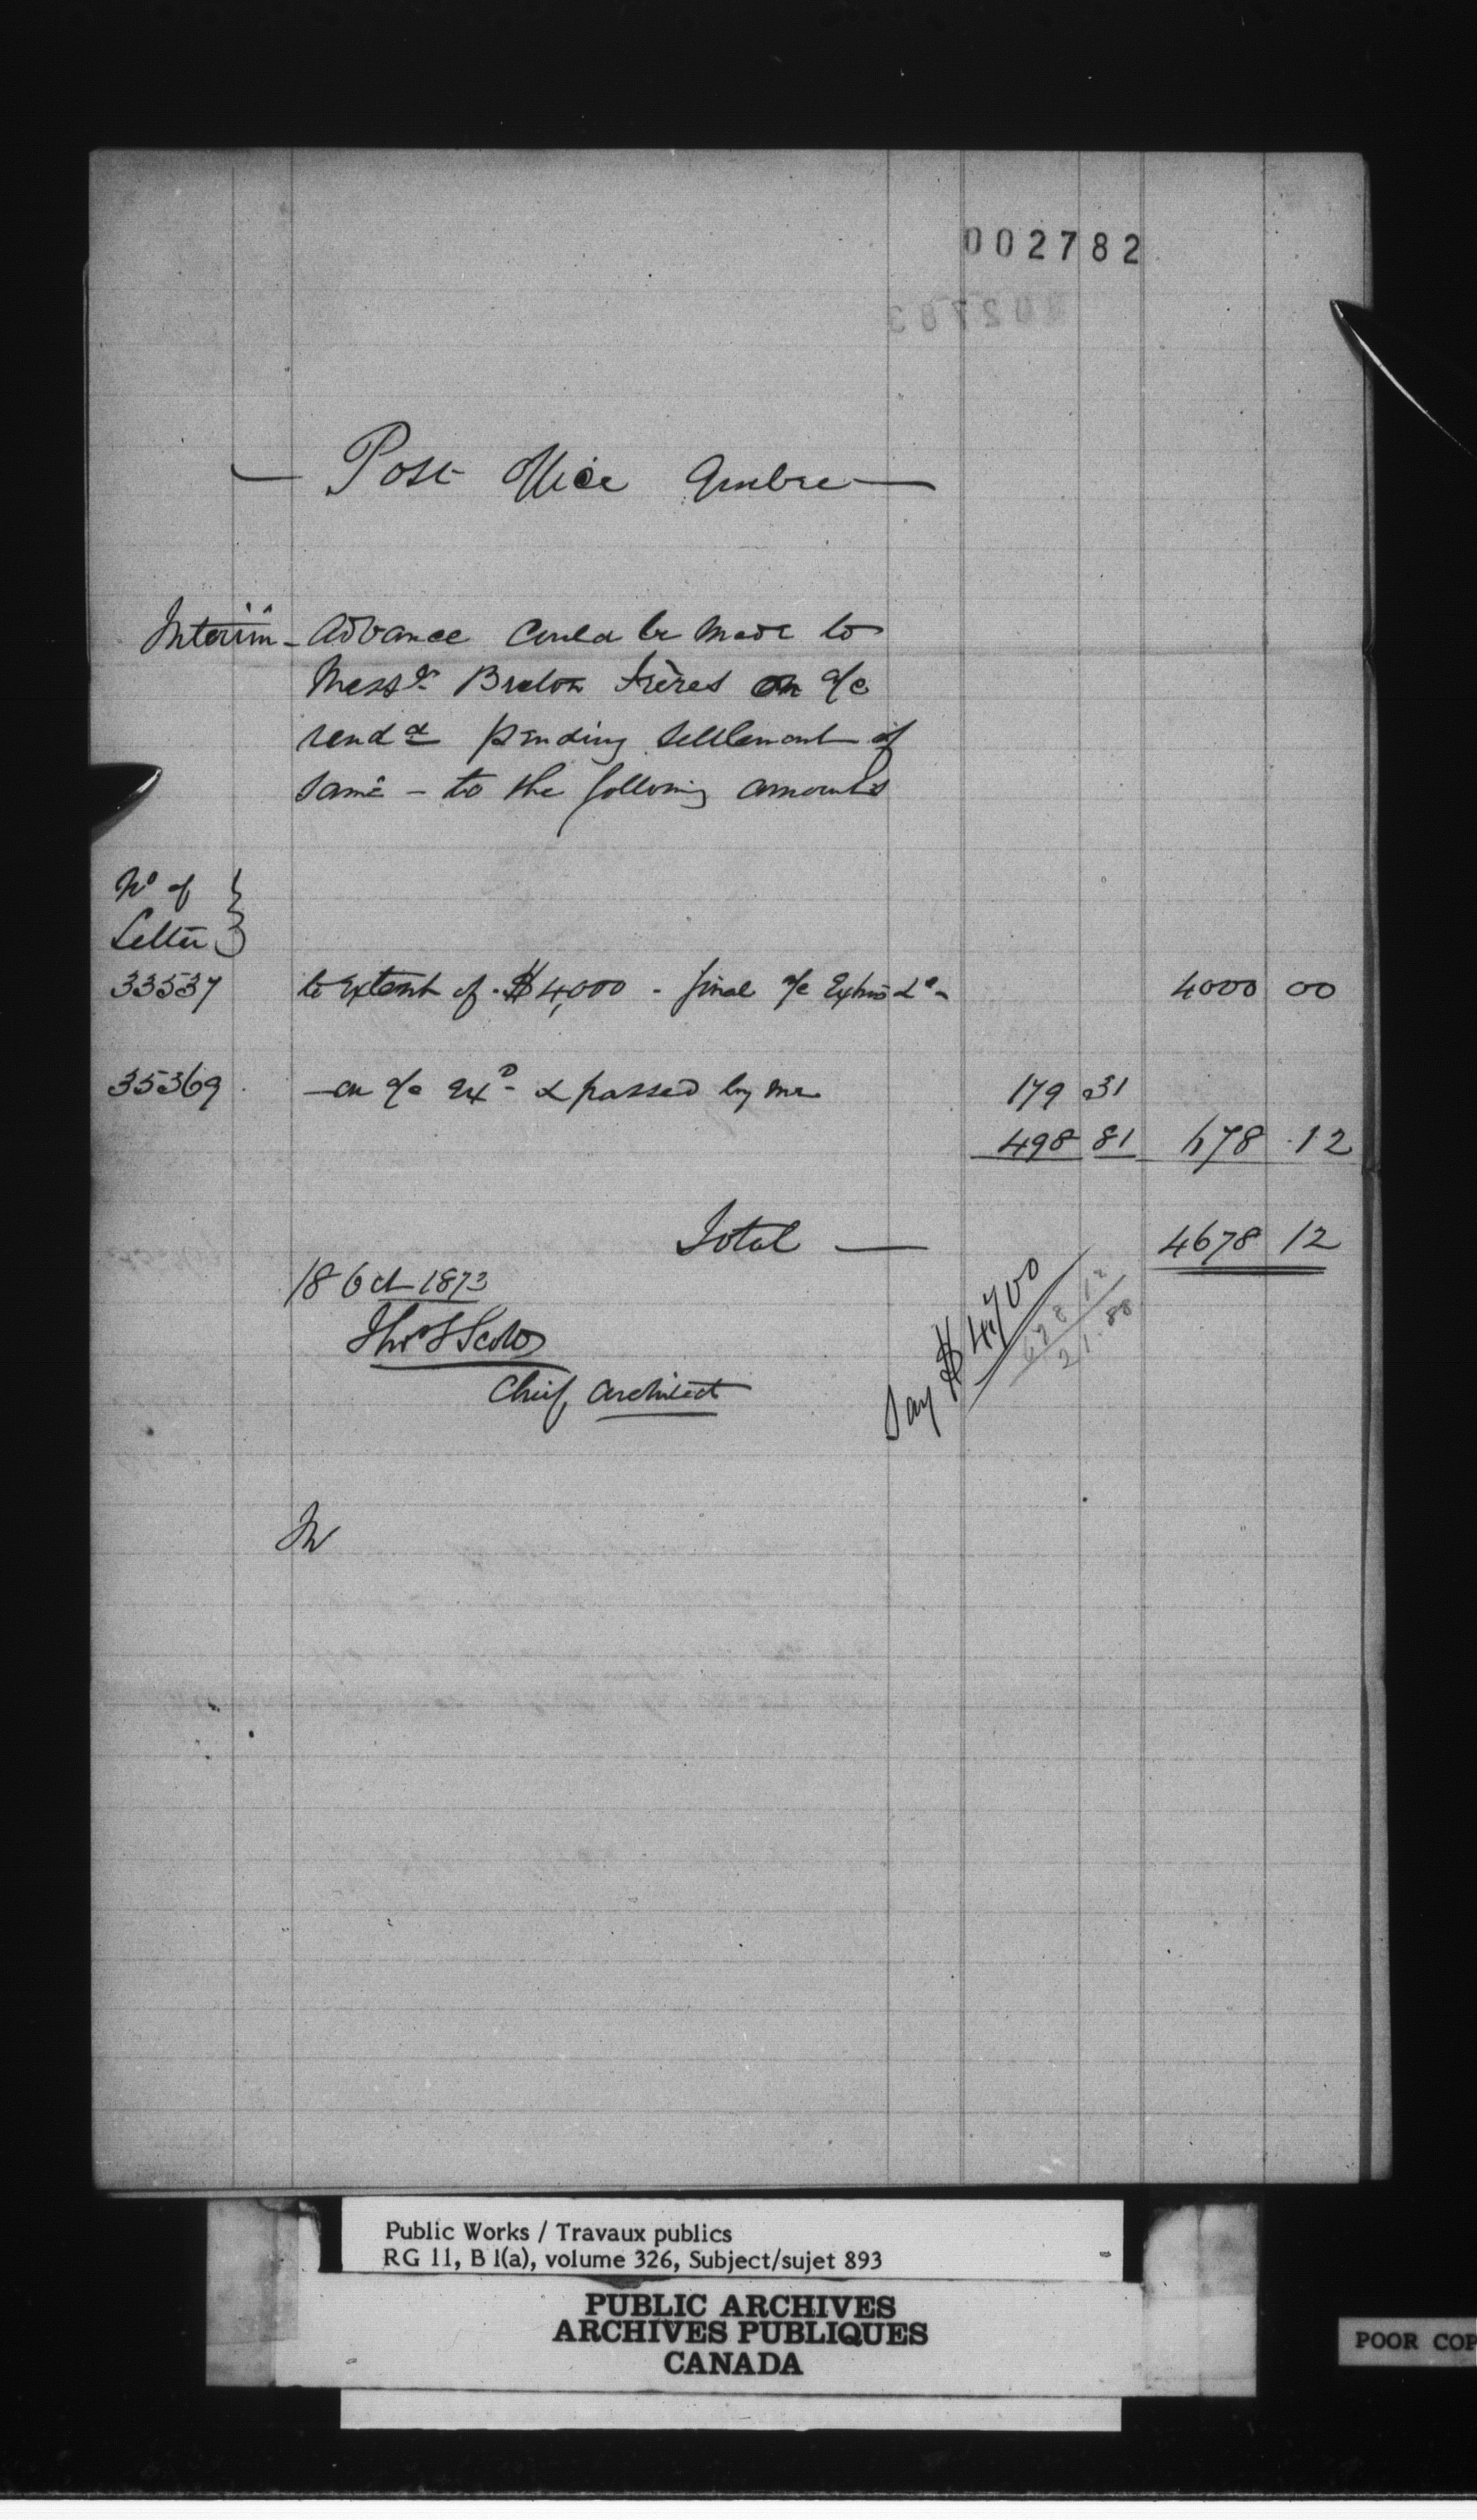 002782
— Post Office Quebec —
Interim - Advance could be made to
Messrs Breton Frères on a/c
rendd pending settlement of
same - to the following amounts
No of }
Letter }
33537 to extent of $4,000 - final a/c Extras &c - 4000 00
35369 - on a/c Exd & passed by me 179 31
498 81 678 12
Total — 4678 12
18 Oct 1873
Thos S Scott
Chief Architect
Say $4,700
678 12
21.88
Public Works / Travaux publics
RG 11, B 1(a), volume 326, Subject/sujet 893
PUBLIC ARCHIVES
ARCHIVES PUBLIQUES
CANADA
POOR COP